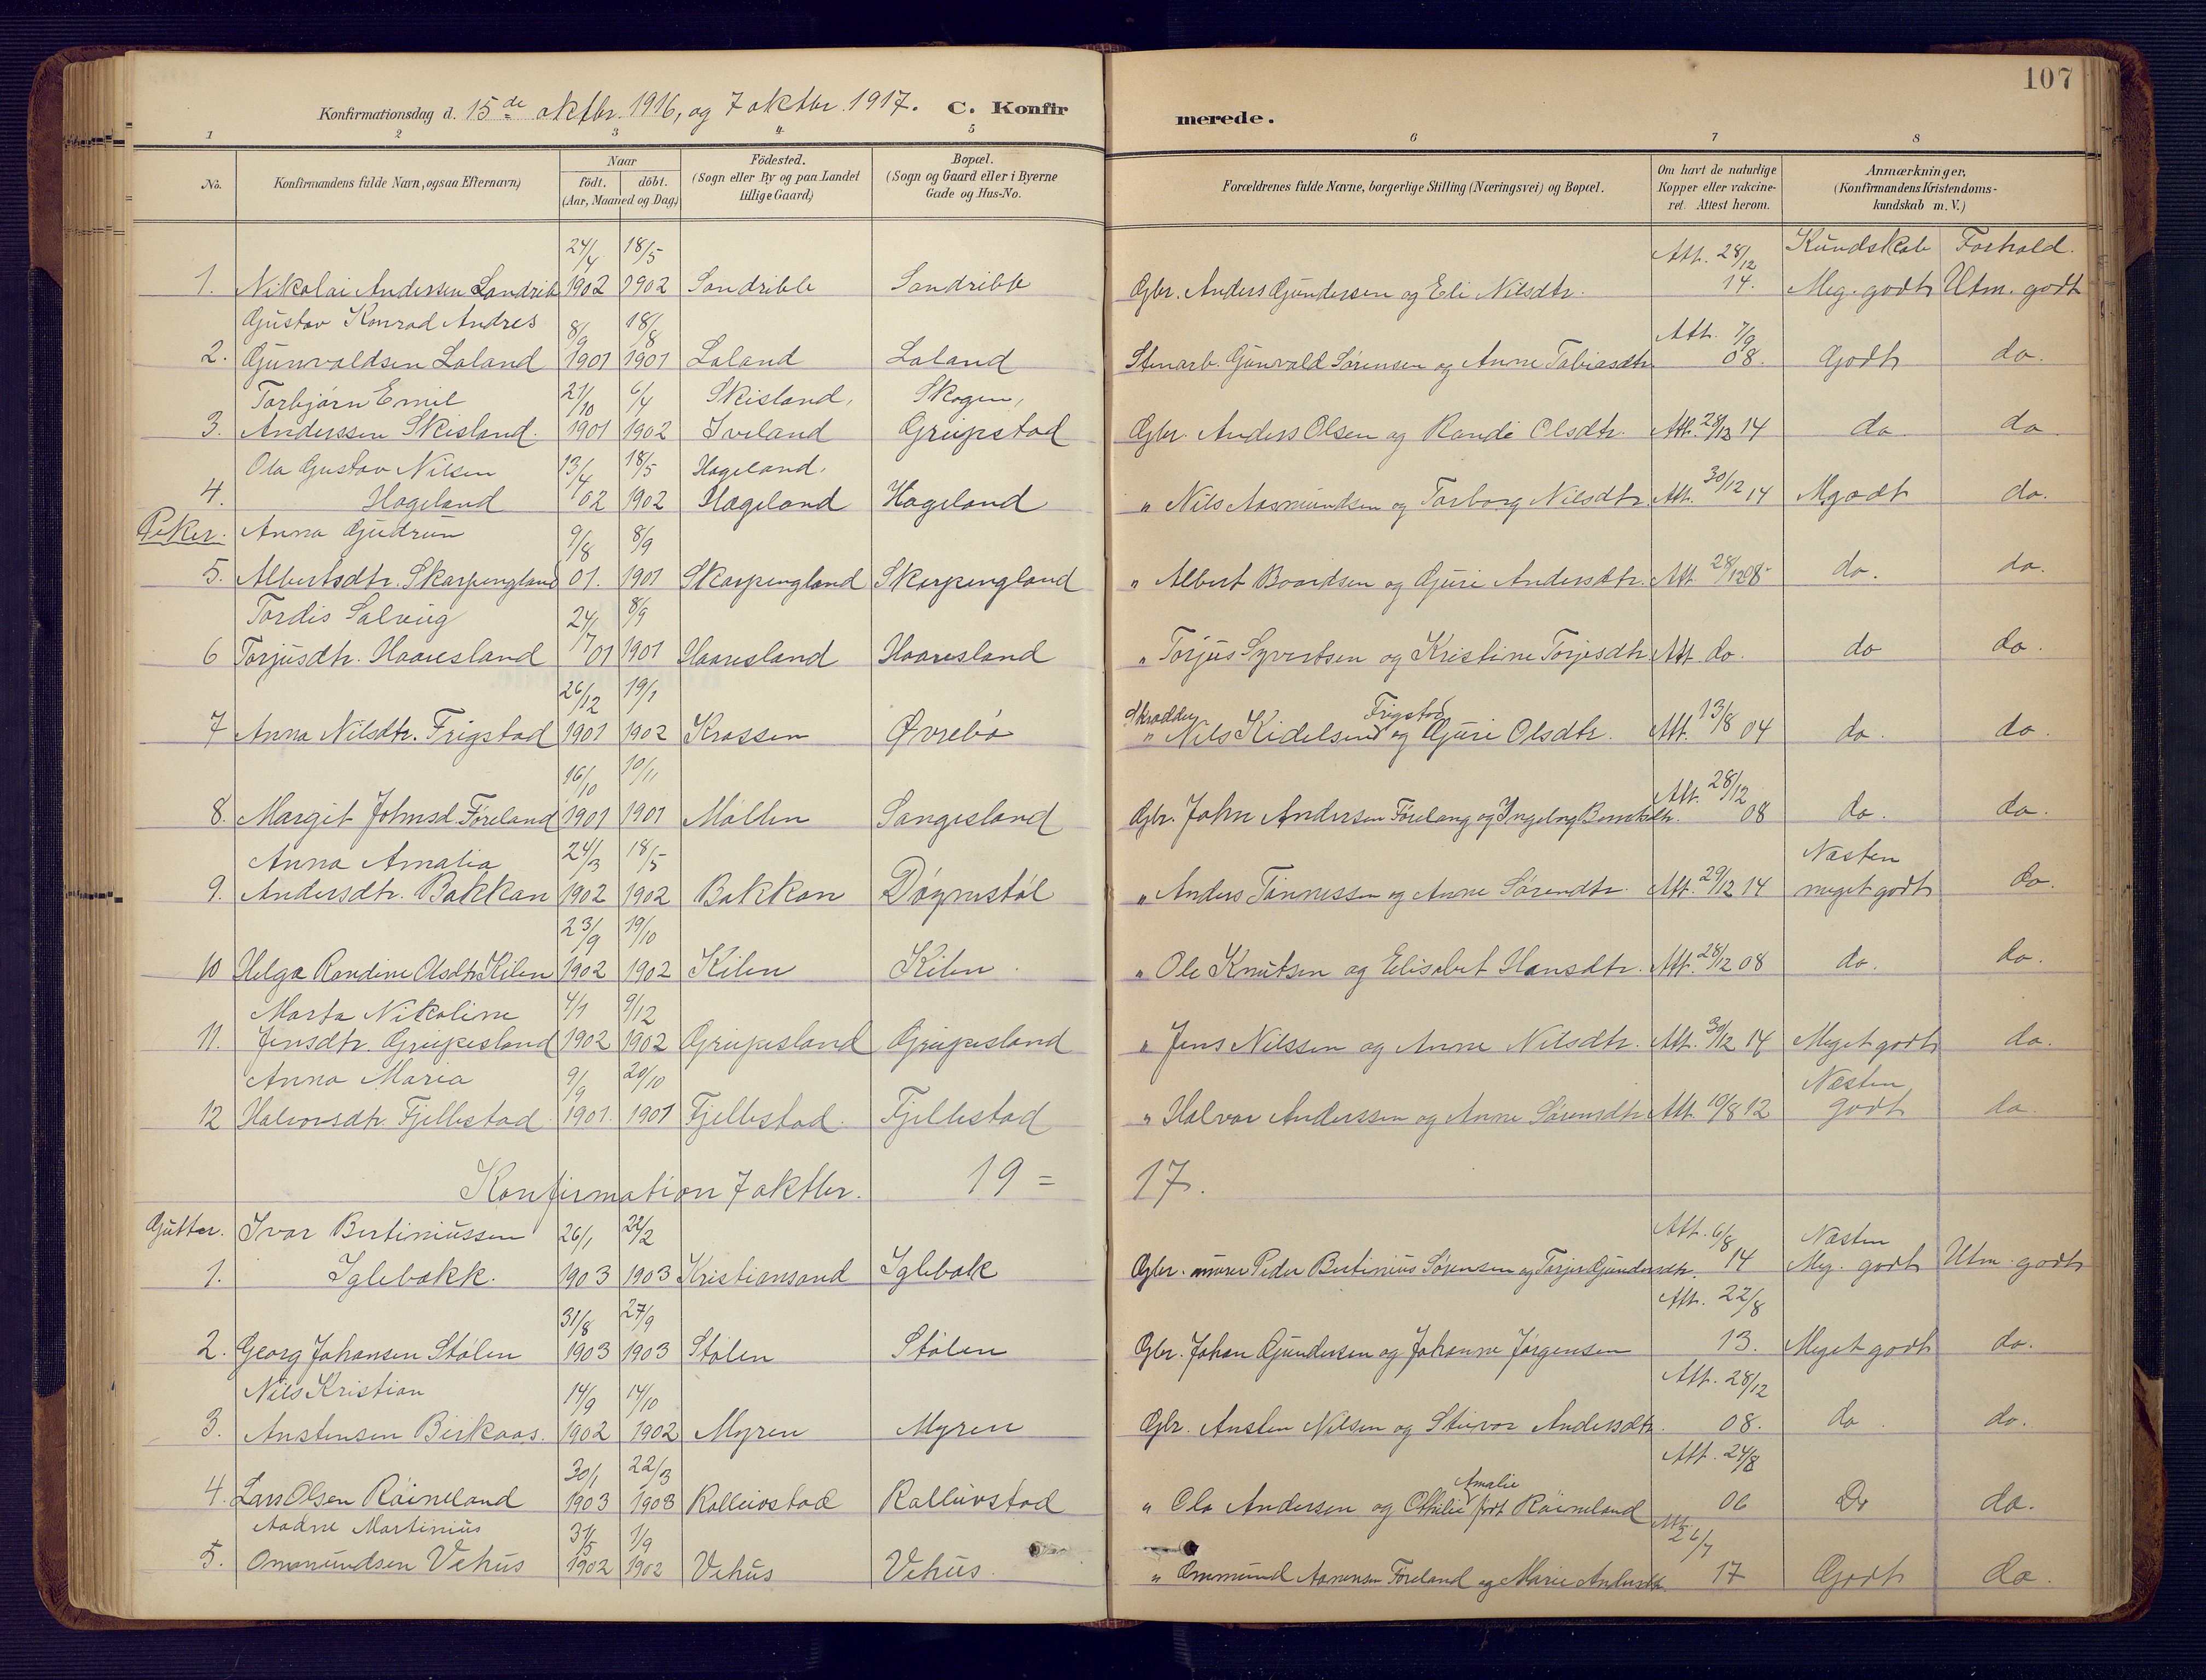 107
Konfirmationsdag d. 15de oktbr. 1916, og 7 oktbr. 1917. C. Konfirmerede.
1 2 3 4 5 6 7 8
No. Konfirmandens fulde Navn, ogsaa Efternavn) Naar födt. döbt. (Aar, Maaned og Dag) Födested. (Sogn eller By og paa Landet tillige Gaard) Bopæl. (Sogn og Gaard eller i Byerne Gade og Hus-No. Forældrenes fulde Navne, borgerlige Stilling (Næringsvei) og Bopæl. Om havt de naturlige Kopper eller vakcineret. Attest herom. Anmærkninger, (Konfirmandens Kristendomskundskab m. V.)
24/4 18/5 Att. 28/12 Kundskab Forhold.
1. Nikolai Anderssen Sandrib 1902 1902 Sandribb Sandribb Gbr. Anders Gundersen og Eli Nilsdtr. 14. Meg. godt Utm. godt
Gustav Konrad Andres 8/9 18/8 Att. 7/9
2. Gunvaldsen Laland 1901 1901 Laland Laland Stenarb. Gunvald Sørensen og Anne Tobiasdtr. 08. Godt do.
Torbjørn Emil 21/10 6/4 Skisland, Skogen,
3. Anderssen Skisland. 1901 1902 Iveland Greipstad Gbr. Anders Olsen og Randi Olsdtr. Att. 28/12 14 do do
Ola Gustav Nilsen 13/4 18/5 Hægeland.
4. Hageland 02 1902 Hægeland Hageland " Nils Aasmundsen og Torborg Nilsdtr. Att. 30/12 14 Mgodt do.
Piker. Anna Gudrun 9/8 8/9
5. Albertsdtr. Skarpengland 01. 1901 Skarpengland Skarpengland " Albert Baardsen og Guri Andersdtr. Att. 28/12 08. do. do.
Tordis Salvug 24/7 8/9
6 Torjusdtr. Haaresland 01 1901 Haaresland Haaresland " Torjus Syvertsen og Kristine Torjesdtr. Att do. do do.
26/12 19/1 Skrædder Frigstad
7 Anna Nilsdtr. Frigstad 1901 1902 Krossen Øvrebø " Nils Kidelsen og Guri Olsdtr. Att. 13/8 04 do. do.
16/10 10/11 Att. 28/12
8. Margit Johnsd. Føreland 1901 1901 Mollen Sangesland Gbr. John Andersen Føreland og Ingeborg Berntsdtr. 08 do. do.
Anna Amalia 24/3 18/5 Næsten
9. Andersdtr. Bakkan 1902 1902 Bakkan Døgnestøl " Anders Tønnessen og Anne Sørendtr. Att. 29/12 14 meget godt do.
23/9 19/10
10 Helga Randine Olsdtr. Kilen 1902 1902 Kilen Kilen. " Ole Knutsen og Elisabet Hansdtr. Att. 28/12 08 do. do.
Marta Nikoline 4/1 9/12
11. Jensdtr. Greipesland 1902 1902 Greipesland Greipesland " Jens Nilssen og Anne Nilsdtr. Att. 30/12 14 Meget godt do.
Anna Maria 9/9 20/10 Næsten
12 Halvorsdtr. Fjellestad 1901. 1901 Fjellestad. Fjellestad " Halvor Anderssen og Anne Sørensdtr. Att. 10/8 12 godt do
Konfirmation 7 oktbr. 19 = 17.
Gutter. Ivar Bertiniussen 26/1 22/2 Att. 6/8 Næsten
1. Iglebakk. 1903 1903 Kristiansand Iglebak Gbr. murer Peder Bertinius Sørensen og Torjer Gundersdtr. 14 Meg. godt Utm. godt
31/8 27/9 Att. 22/8
2. Georg Johansen Stølen 1903 1903 Stølen Stølen Gbr. Johan Gundersen og Johanne Jørgensen 13. Meget godt do.
Nils Kristian 14/9 14/10 Att. 28/12
3. Anstensen Birkaas. 1902 1902 Myren Myren Gbr. Ansten Nilsen og Stuvor Andersdtr. 08. do. do.
30/1 22/3 Amalie Att. 24/8
4. Lars Olsen Røineland 1903 1903 Kalleivstad Kalleivstad " Ola Andersen og Othilie født Røineland 06 Do do.
Aadne Martinius 31/5 1/9 Att. 26/7
5. Ommundsen Vehus 1902 1902 Vehus Vehus. " Ommund Aanensen Føreland og Marie Andersdtr. 17 Godt do.